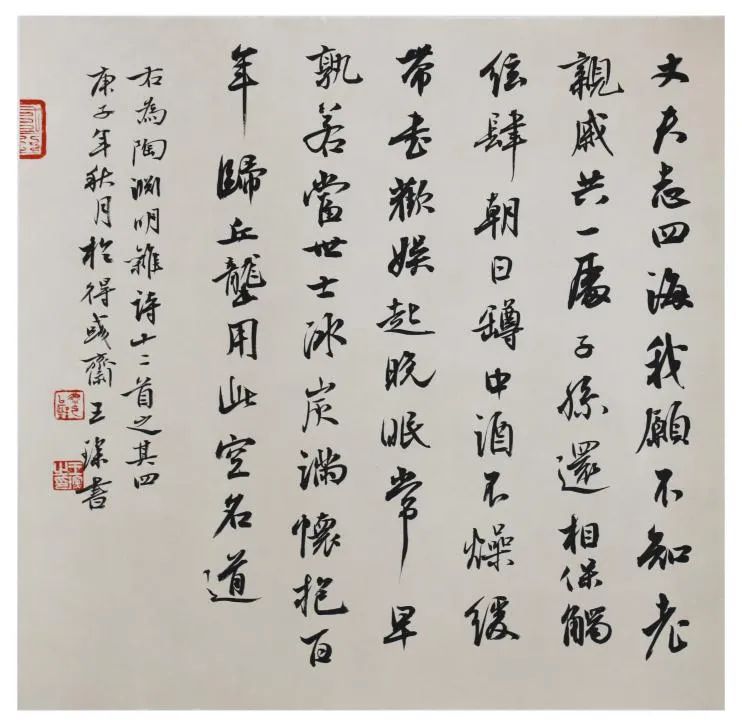 丈夫志四海我願不知老
親戚共一處子孫還相保觴
絃肆朝日罇中酒不燥緩
帶盡歡娛起晚眠常早
孰若當世士冰炭滿懷抱百
年歸丘壟用此空名道
右為陶渊明雜詩十二首之其四
庚子年秋月於得齋王書